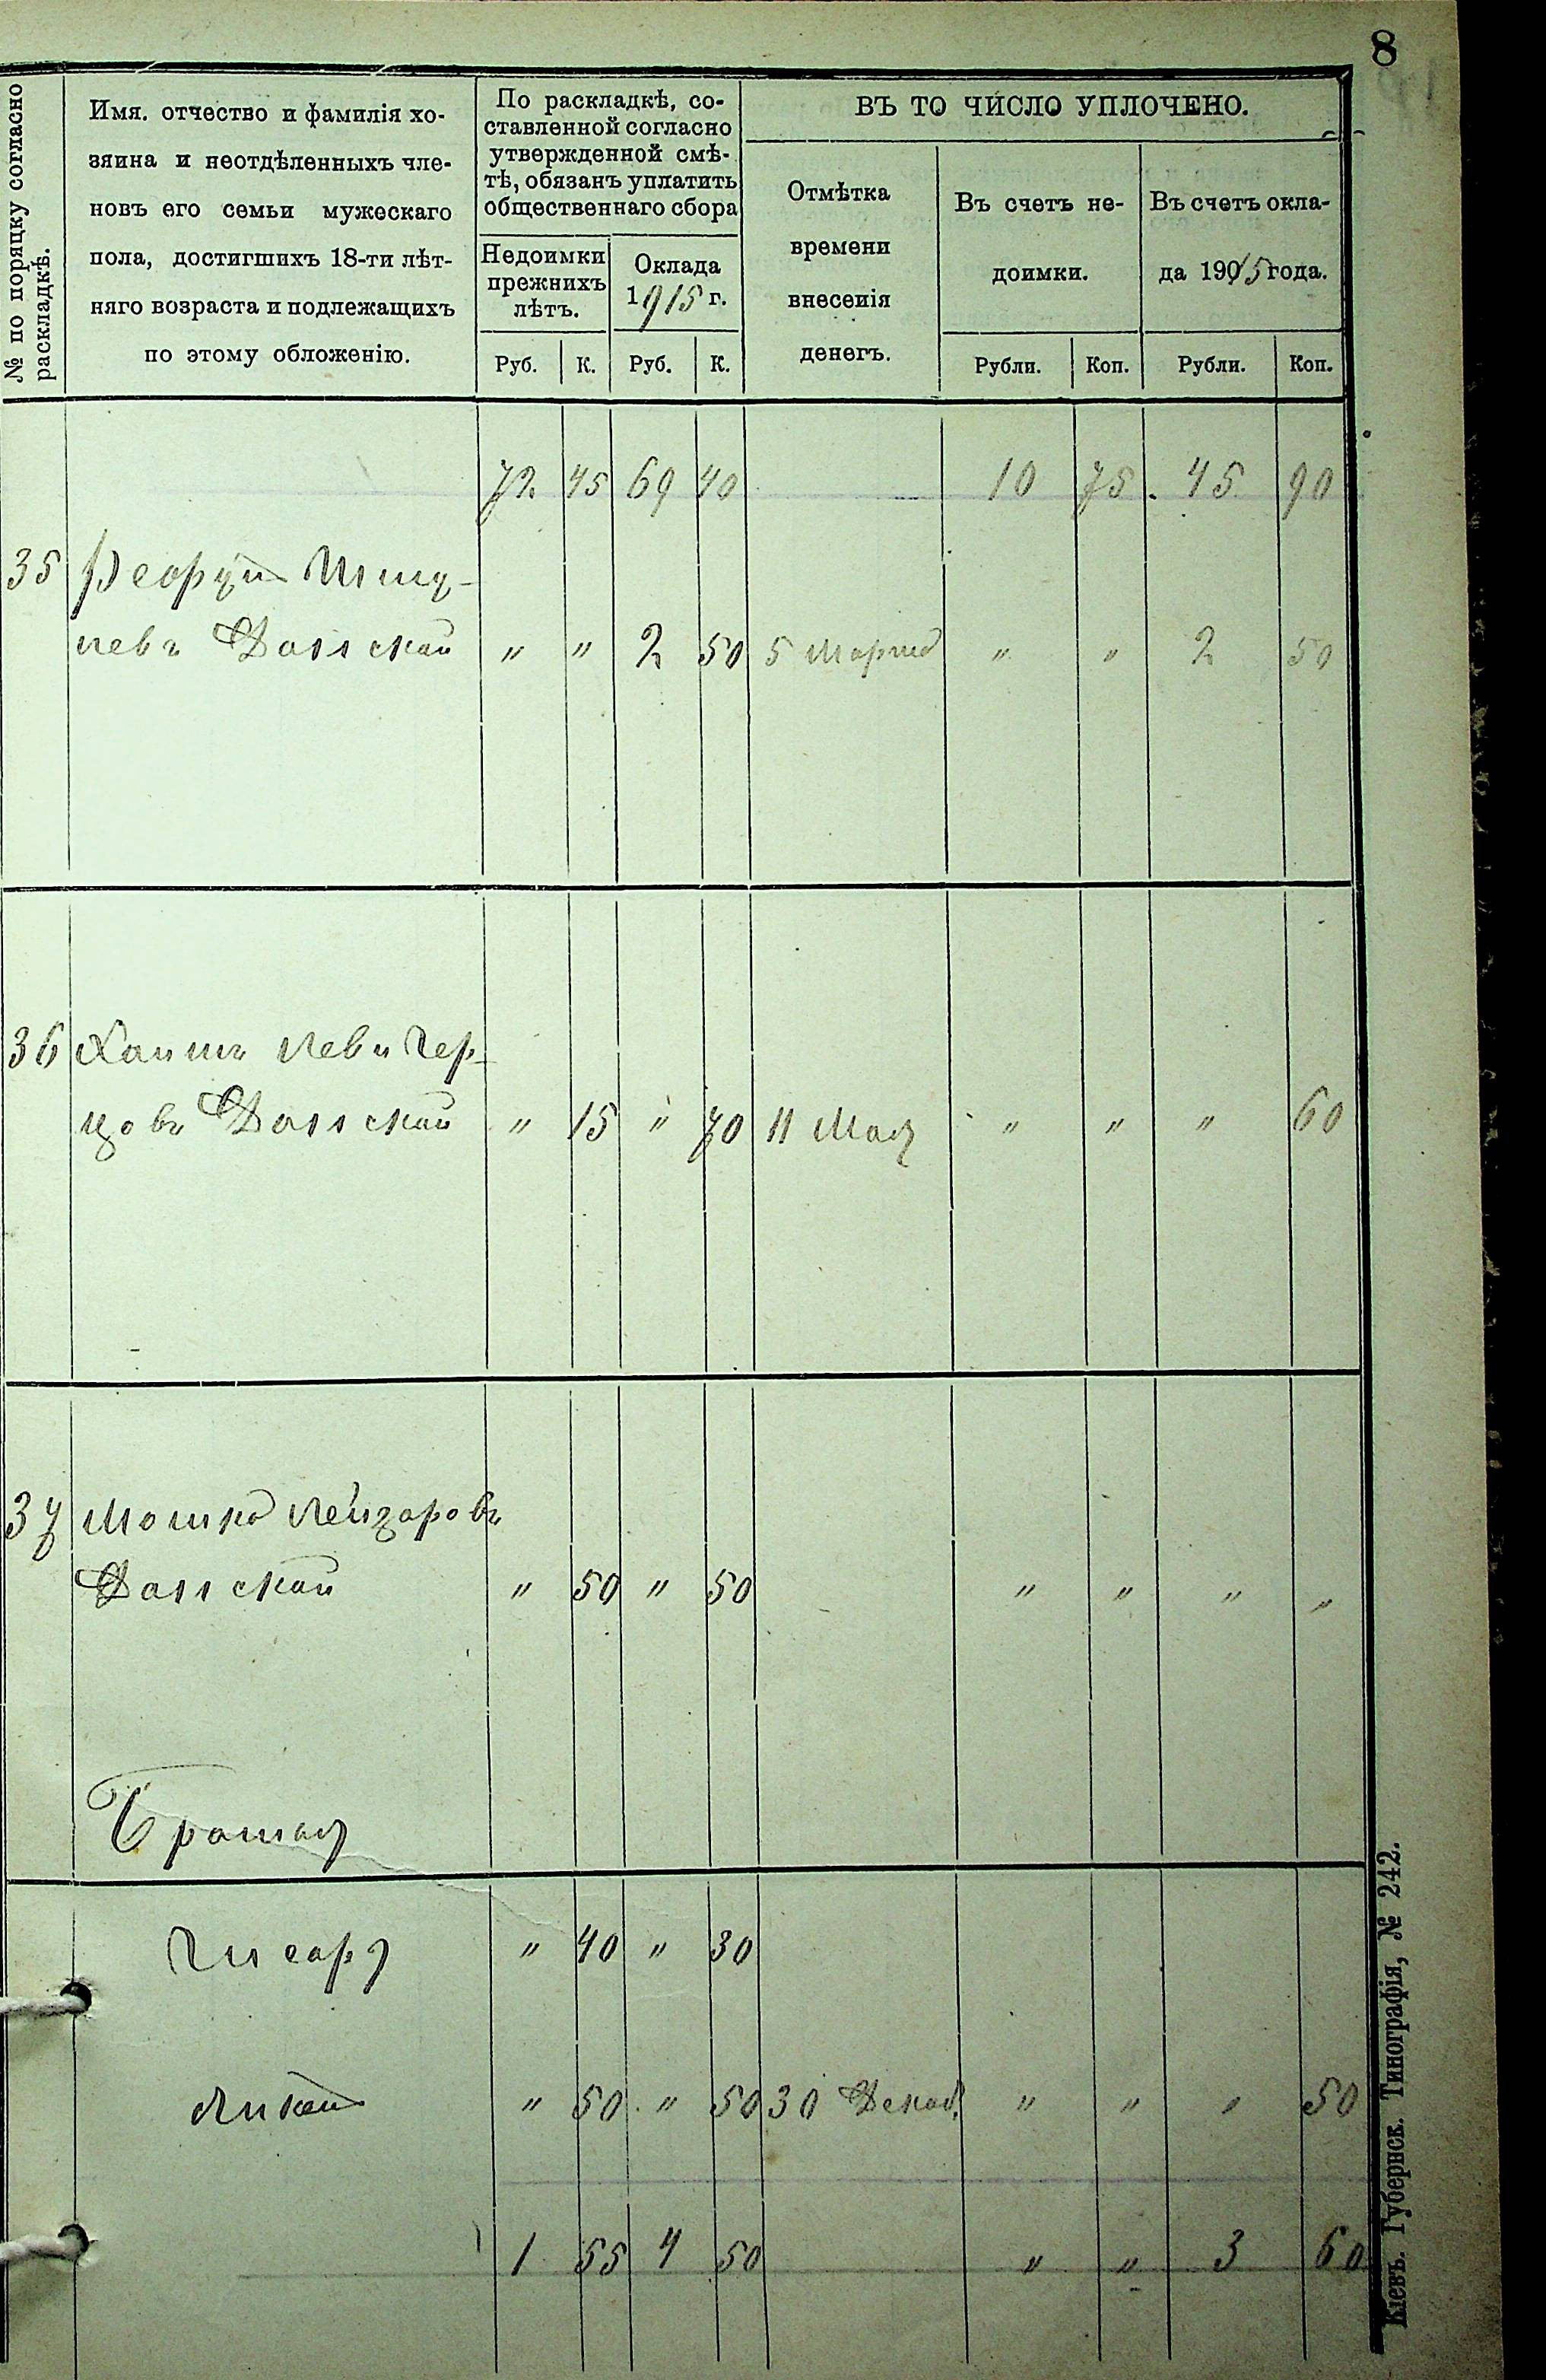 8
№ по поряцку согласно
раскладкѣ.
Имя. отчество и фамилія хо-
зяина и неотдѣленныхъ чле-
новъ его семьи мужескаго
пола, достигшихъ 18-ти лѣт-
няго возраста и подлежащихъ
по этому обложенію.
По раскладкѣ, со-
ставленной согласно
утвержденной смѣ-
тѣ, обязанъ уплатить
общественнаго сбора
Недоимки
прежнихъ
лѣтъ.
Оклада
1915 г.
Руб. К. Руб. К.
ВЪ ТО ЧИСЛО УПЛОЧЕНО.
Отмѣтка
времени
внесенія
денегъ.
Въ счетъ не-
доимки.
Рубли. Коп.
Въ счетъ окла-
да 1915 года.
Рубли. Коп.
72 45 69 40 10 75 45 90
35
левъ Данскій " " 2 50 5 Марта " " 2 50
36 Хаимъ Лейб Гер-
цовъ Данскій " 15 " 70 11 Мая " " " 60
37 Мошко Лейзаровъ
Данскій " 50 " 50 " " " "
Братья
" 40 " 30
" 50 " 50 30 Декаб. " " " 50
1 55 4 50 " " 3 60
Кіевъ. Губернск. Типографія, № 242.